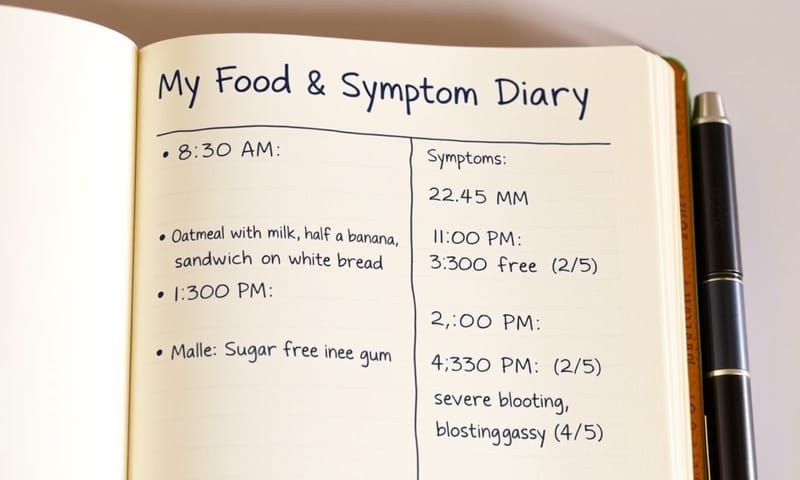 My Food & Symptom Diary
• 8:30 AM:
• Oatmeal with milk, half a banana,
sandwich on white bread
• 1:300 PM:
• Malle: Sugar free inee gum
Symptoms:
22.45 MM
11:00 PM:
3:300 free (2/5)
2,:00 PM:
4;330 PM: (2/5)
severe blooting,
blostinggassy (4/5)